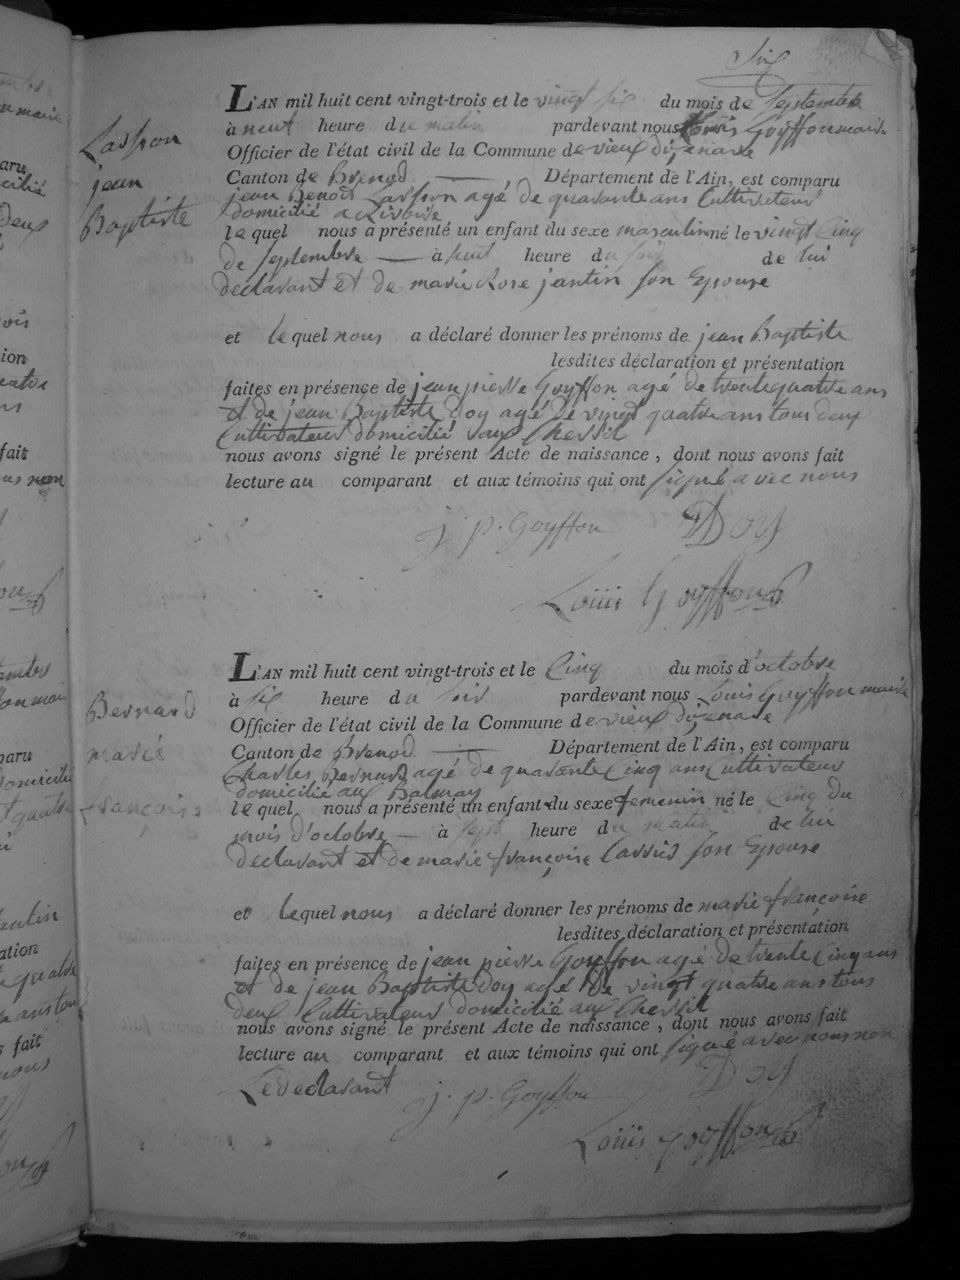 Six
Lasson
jean
Baptiste
L'AN mil huit cent vingt-trois et le vingt six du mois de septembre
à neuf heure du matin pardevant nous Louis Goyffon maire
Officier de l'état civil de la Commune de vieux dizenave
Canton de Brenod Département de l'Ain, est comparu
jean Benoit Lasson agé de quarante ans Cultivateur
domicilié a
le quel nous a présenté un enfant du sexe masculin né le vingt Cinq
de septembre à huit heure du soir de lui
declarant et de marie Rose jantin son Epouse
et lequel nous a déclaré donner les prénoms de jean Baptiste
lesdites déclaration et présentation
faites en présence de jean pierre Goyffon agé de trente quatre ans
et de jean Baptiste Doy agé de vingt quatre ans tous deux
Cultivateur domicilié aux Chevril
nous avons signé le présent Acte de naissance, dont nous avons fait
lecture au comparant et aux témoins qui ont signé avec nous
j. p. Goyffon Doy
Louis Goyffon
Bernard
marie
françoise
L'AN mil huit cent vingt-trois et le Cinq du mois d'octobre
à six heure du soir pardevant nous Louis Goyffon maire
Officier de l'état civil de la Commune de vieux dizenave
Canton de Brenod Département de l'Ain, est comparu
Charles Bernard agé de quarante Cinq ans Cultivateur
domicilié au Balmay
le quel nous a présenté un enfant du sexe femenin né le Cinq du
mois d'octobre à sept heure du matin de lui
declarant et de marie françoise son Epouse
et lequel nous a déclaré donner les prénoms de marie françoise
lesdites déclaration et présentation
faites en présence de jean pierre Goyffon agé de trente Cinq ans
et de jean Baptiste Doy agé de vingt quatre ans tous
deux Cultivateur domicilié aux Chevril
nous avons signé le présent Acte de naissance, dont nous avons fait
lecture au comparant et aux témoins qui ont signé avec nous non
Le declarant j. p. Goyffon Doy
Louis Goyffon